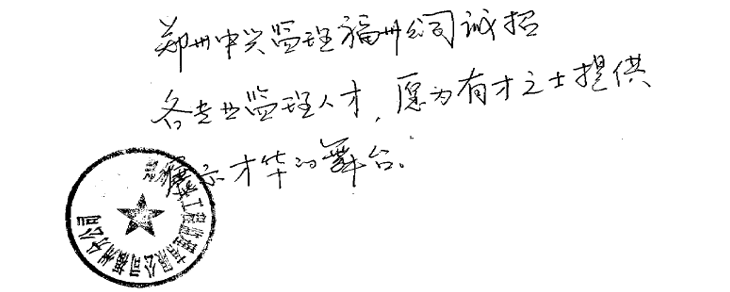 郑州中兴监理福州公司诚招
各专业监理人才，愿为有才之士提供
展示才华的舞台。
工程监理有限公司福州分公司